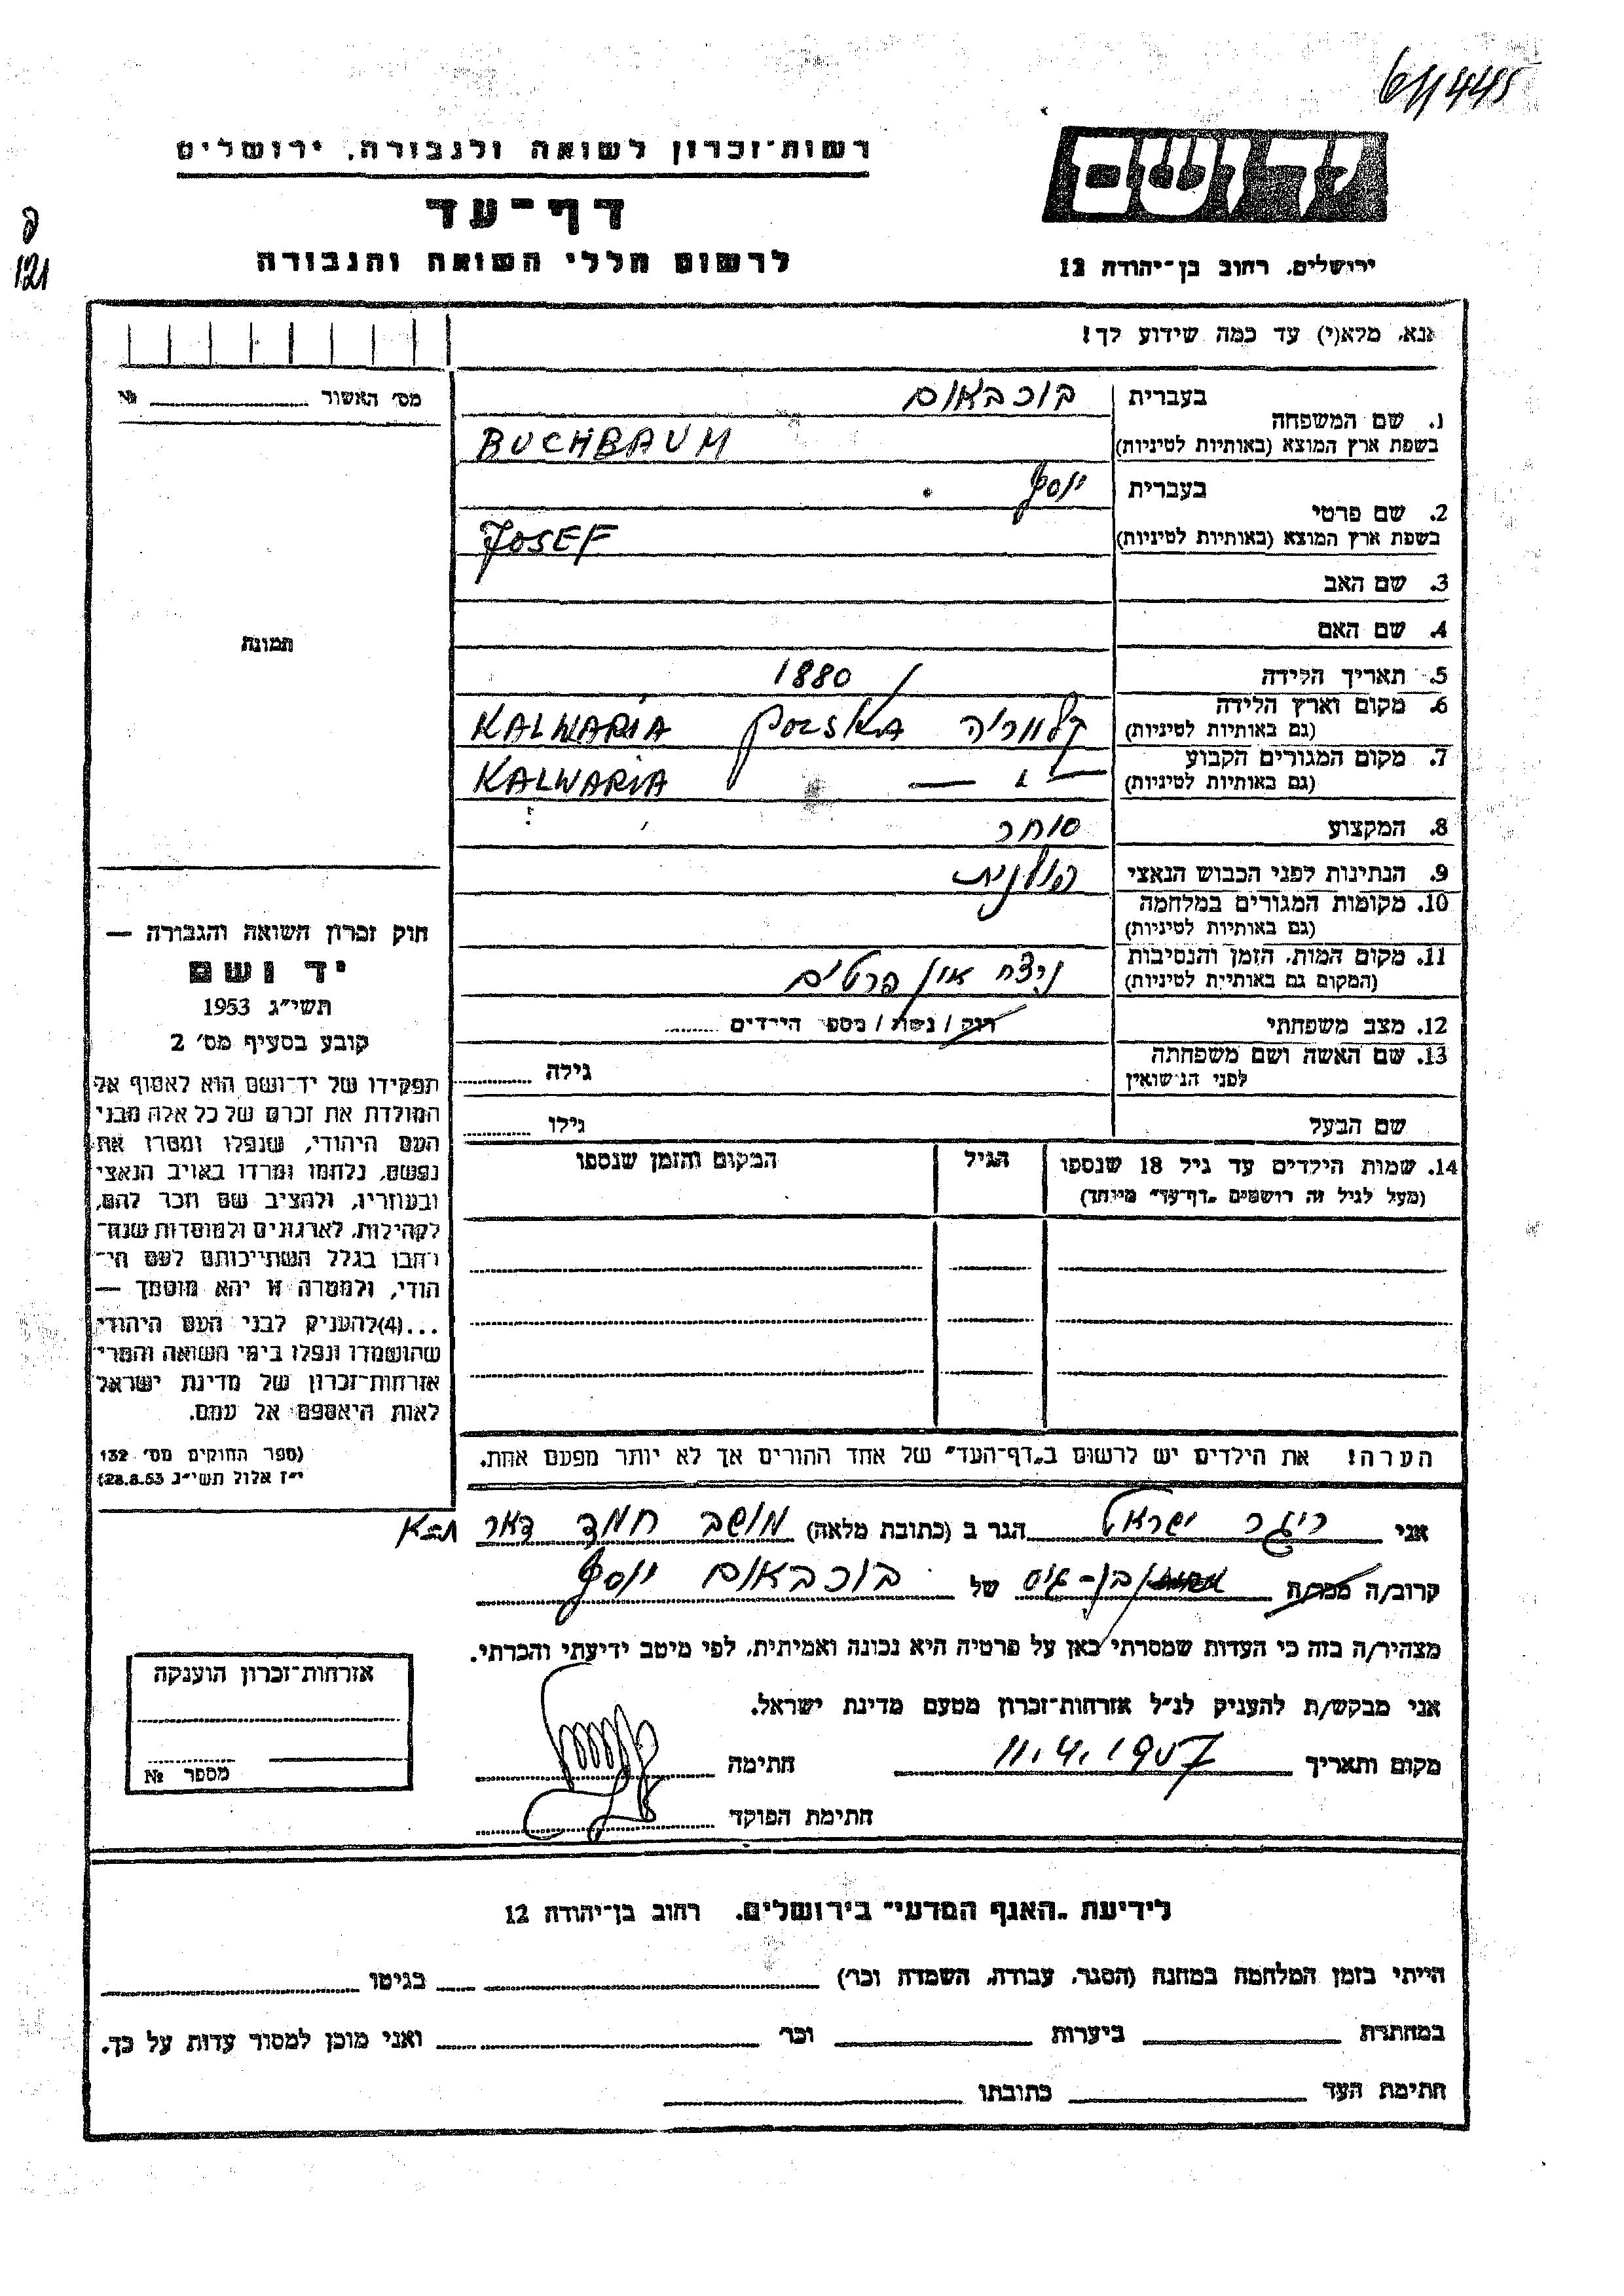 611445
רשות־זכרון לשואה ולגבורה, ירושלים
דף־עד
לרשום חללי השואה והגבורה
ידושם
ירושלים, רחוב בן־יהודה 12
121
אנא, מלא(י) עד כמה שידוע לך!
מס׳ האשור № 
1. שם המשפחה
בעברית בוכבאום
בשפת ארץ המוצא (באותיות לטיניות) BUCHBAUM
2. שם פרטי
בעברית יוסף
בשפת ארץ המוצא (באותיות לטיניות) JOSEF
3. שם האב
4. שם האם
תמונה
5. תאריך הלידה 1880
6. מקום וארץ הלידה
(גם באותיות לטיניות) קלווריה POLSKA KALWARIA
7. מקום המגורים הקבוע
(גם באותיות לטיניות) — " — KALWARIA
8. המקצוע סוחר
9. הנתינות לפני הכבוש הנאצי פולנית
10. מקומות המגורים במלחמה
(גם באותיות לטיניות)
11. מקום המות, הזמן והנסיבות
(המקום גם באותיות לטיניות) ניצח און פרטים
12. מצב משפחתי רוק / נשוי / מספר הילדים
13. שם האשה ושם משפחתה
לפני הנישואין גילה
שם הבעל גילו
14. שמות הילדים עד גיל 18 שנספו הגיל המקום והזמן שנספו
(מעל לגיל זה רושמים „דף־עד" מיוחד)
הערה! את הילדים יש לרשום ב„דף־העד" של אחד ההורים אך לא יותר מפעם אחת.
חוק זכרון השואה והגבורה —
יד ושם
תשי"ג 1953
קובע בסעיף מס׳ 2
תפקידו של יד־ושם הוא לאסוף אל
המולדת את זכרם של כל אלה מבני
העם היהודי, שנפלו ומסרו את
נפשם, נלחמו ומרדו באויב הנאצי
ובעוזריו, ולהציב שם וזכר להם,
לקהילות, לארגונים ולמוסדות שנח־
רבו בגלל השתייכותם לעם הי־
הודי, ולמטרה זו יהא מוסמך —
...(4)להעניק לבני העם היהודי
שהושמדו ונפלו בימי השואה והמרי
אזרחות־זכרון של מדינת ישראל
לאות היאספם אל עמם.
(ספר החוקים מס׳ 132
י"ז אלול תשי"ג 28.8.53)
אני ריגר ישראל הגר ב (כתובת מלאה) מושב חמד דאר
קרוב/ה מכר/ה בן-גיס של בוכבאום יוסף
מצהיר/ה בזה כי העדות שמסרתי כאן על פרטיה היא נכונה ואמיתית, לפי מיטב ידיעתי והכרתי.
אני מבקש/ת להעניק לנ"ל אזרחות־זכרון מטעם מדינת ישראל.
מקום ותאריך 11.4.1957 חתימה
חתימת הפוקד
אזרחות־זכרון הוענקה
מספר №
לידיעת „האגף המדעי" בירושלים, רחוב בן־יהודה 12
הייתי בזמן המלחמה במחנה (הסגר, עבודה, השמדה וכר) בגיטו
במחתרת ביערות וכר ואני מוכן למסור עדות על כך.
חתימת העד כתובתו